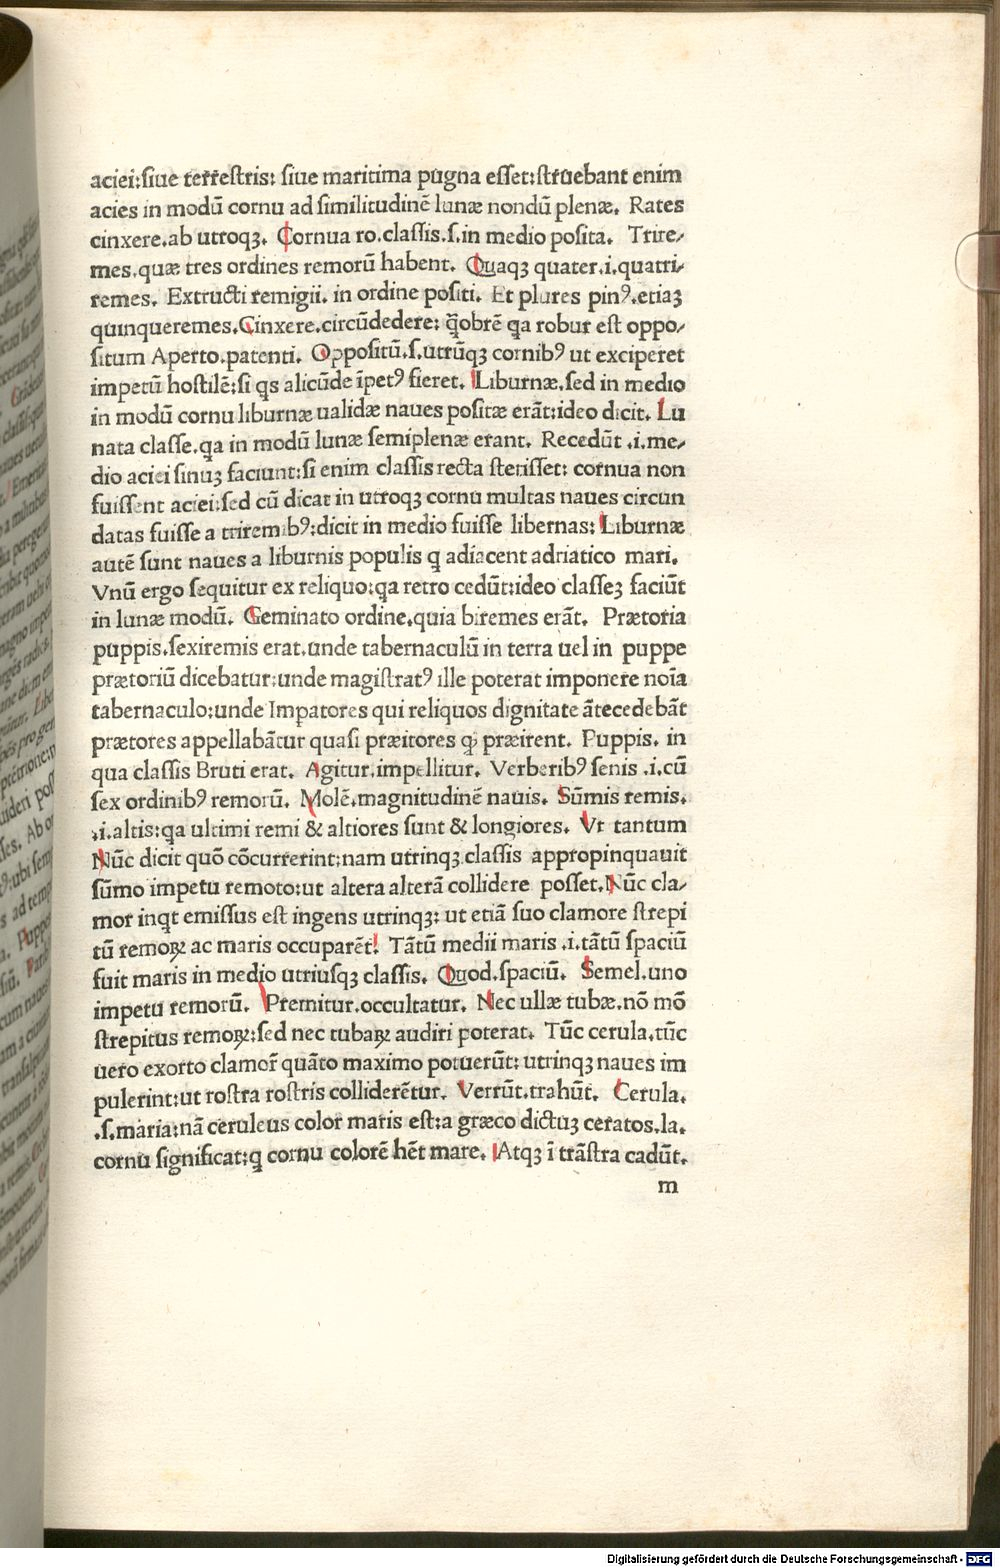 aciei:ſiue terreſtris: ſiue maritima pugna eſſet:ſtruebant enim
acies in modũ cornu ad ſimilitudinẽ lunæ nondũ plenæ. Rates
cinxere.ab utroqꝫ. Cornua ro.claſſis.ſ.in medio poſita. Trire/
mes.quæ tres ordines remorũ habent. Quaqꝫ quater.i.quatri/
remes. Extructi remigii. in ordine poſiti. Et plures pinꝰ.etiaꝫ
quinqueremes.Cinxere.circũdedere: q̃obrẽ qa robur eſt oppo/
ſitum Aperto.patenti. Oppoſitũ.ſ.utrũqꝫ cornibꝰ ut exciperet
impetũ hoſtilẽ:ſi qs alicũde ĩpetꝰ fieret. Liburnæ.ſed in medio
in modũ cornu liburnæ ualidæ naues poſitæ erãt:ideo dicit. Lu
nata claſſe.qa in modũ lunæ ſemiplenæ erant. Recedũt .i.me/
dio aciei ſinuꝫ faciunt:ſi enim claſſis recta ſteriſſet: cornua non
fuiſſent aciei:ſed cũ dicat in utroqꝫ cornu multas naues circun
datas fuiſſe a trirem bꝰ:dicit in medio fuiſſe libernas: Liburnæ
autẽ ſunt naues a liburnis populis ꝗ adiacent adriatico mari.
Vnũ ergo ſequitur ex reliquo:qa retro cedũt:ideo claſſeꝫ faciũt
in lunæ modũ. Geminato ordine.quia biremes erãt. Prætoria
puppis.ſexiremis erat.unde tabernaculũ in terra uel in puppe
prætoriũ dicebatur:unde magiſtratꝰ ille poterat imponere noĩa
tabernaculo:unde Imꝑatores qui reliquos dignitate ãtecedebãt
prætores appellabãtur quaſi præitores ꝙ præirent. Puppis. in
qua claſſis Bruti erat. Agitur.impellitur. Verberibꝰ ſenis .i.cũ
ſex ordinibꝰ remorũ. Molẽ.magnitudinẽ nauis. Sũmis remis.
.i.altis:qa ultimi remi & altiores ſunt & longiores. Vt tantum
Nũc dicit quõ cõcurrerint:nam utrinqꝫ claſſis appropinquauit
ſũmo impetu remoto:ut altera alterã collidere poſſet.Nũc cla/
mor inqt emiſſus eſt ingens utrinqꝫ: ut etiã ſuo clamore ſtrepi
tũ remoꝝ ac maris occuparẽt: Tãtũ medii maris .i.tãtũ ſpaciũ
fuit maris in medio utriuſqꝫ claſſis. Quod.ſpaciũ. Semel.uno
impetu remorũ. Premitur.occultatur. Nec ullæ tubæ.nõ mõ
ſtrepitus remoꝝ:ſed nec tubaꝝ audiri poterat. Tũc cerula.tũc
uero exorto clamor̃ quãto maximo potuerũt: utrinqꝫ naues im
pulerint:ut roſtra roſtris colliderẽtur. Verrũt.trahũt. Cerula.
.ſ.maria:nã ceruleus color maris eſt:a græco dictuꝫ ceratos.la.
cornu ſignificat:ꝗ cornu colorẽ hẽt mare. Atqꝫ ĩ trãſtra cadũt.
m
Digitalisierung gefördert durch die Deutsche Forschungsgemeinschaft - DFG